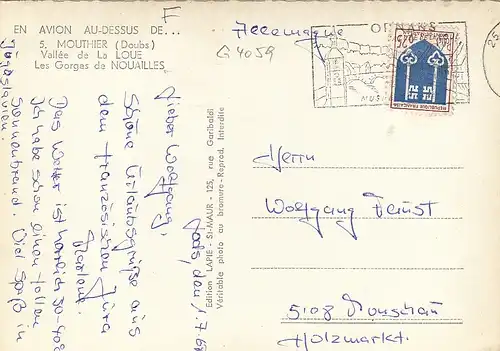 F
EN AVION AU-DESSUS DE...
5. MOUTHIER (Doubs)
Vallée de La LOUE
Les Gorges de NOUAILLES
Allemagne
G 4059
ORNANS
MUS
0,25
REPUBLIQUE FRANÇAISE
25
Edition LAPIE - St-MAUR - 125, rue Garibaldi
Véritable photo au bromure - Reprod. Interdite
den 1.7.6
Lieber Wolfgang,
schöne Urlaubsgrüße aus
dem französischen Jura
Das Wetter ist herrlich 30-40°
Ich habe schon einen tollen
Sonnenbrand. Viel Spaß in
Jugoslavien.
Herrn
Wolfgang Feust
5108 Monschau
Holzmarkt.